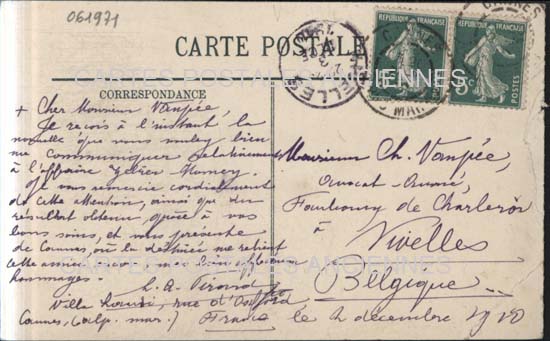 061971
CARTE POSTALE
REPUBLIQUE FRANÇAISE
REPUBLIQUE FRANÇAISE
CANNES
NIVELLES
CARTES POSTALES ANCIENNES
CORRESPONDANCE
+ Cher Monsieur Vanpée,
Je reçois à l'instant la
nouvelle que vous voulez bien
me communiquer relativement
à l'affaire
Je vous remercie cordialement
de cette attention, ainsi que du
résultat obtenu, grâce à vos
bons soins, et vous présente
de Cannes, où la destinée me retient
cette année, mes
hommages.
Villa rue d'Oxford
Cannes, (alp. mar.) France le 2 décembre 1910
Monsieur Ch. Vanpée,
Avocat-Avoué,
Faubourg de Charleroi
à
Nivelles
Belgique
CARTES POSTALES ANCIENNES